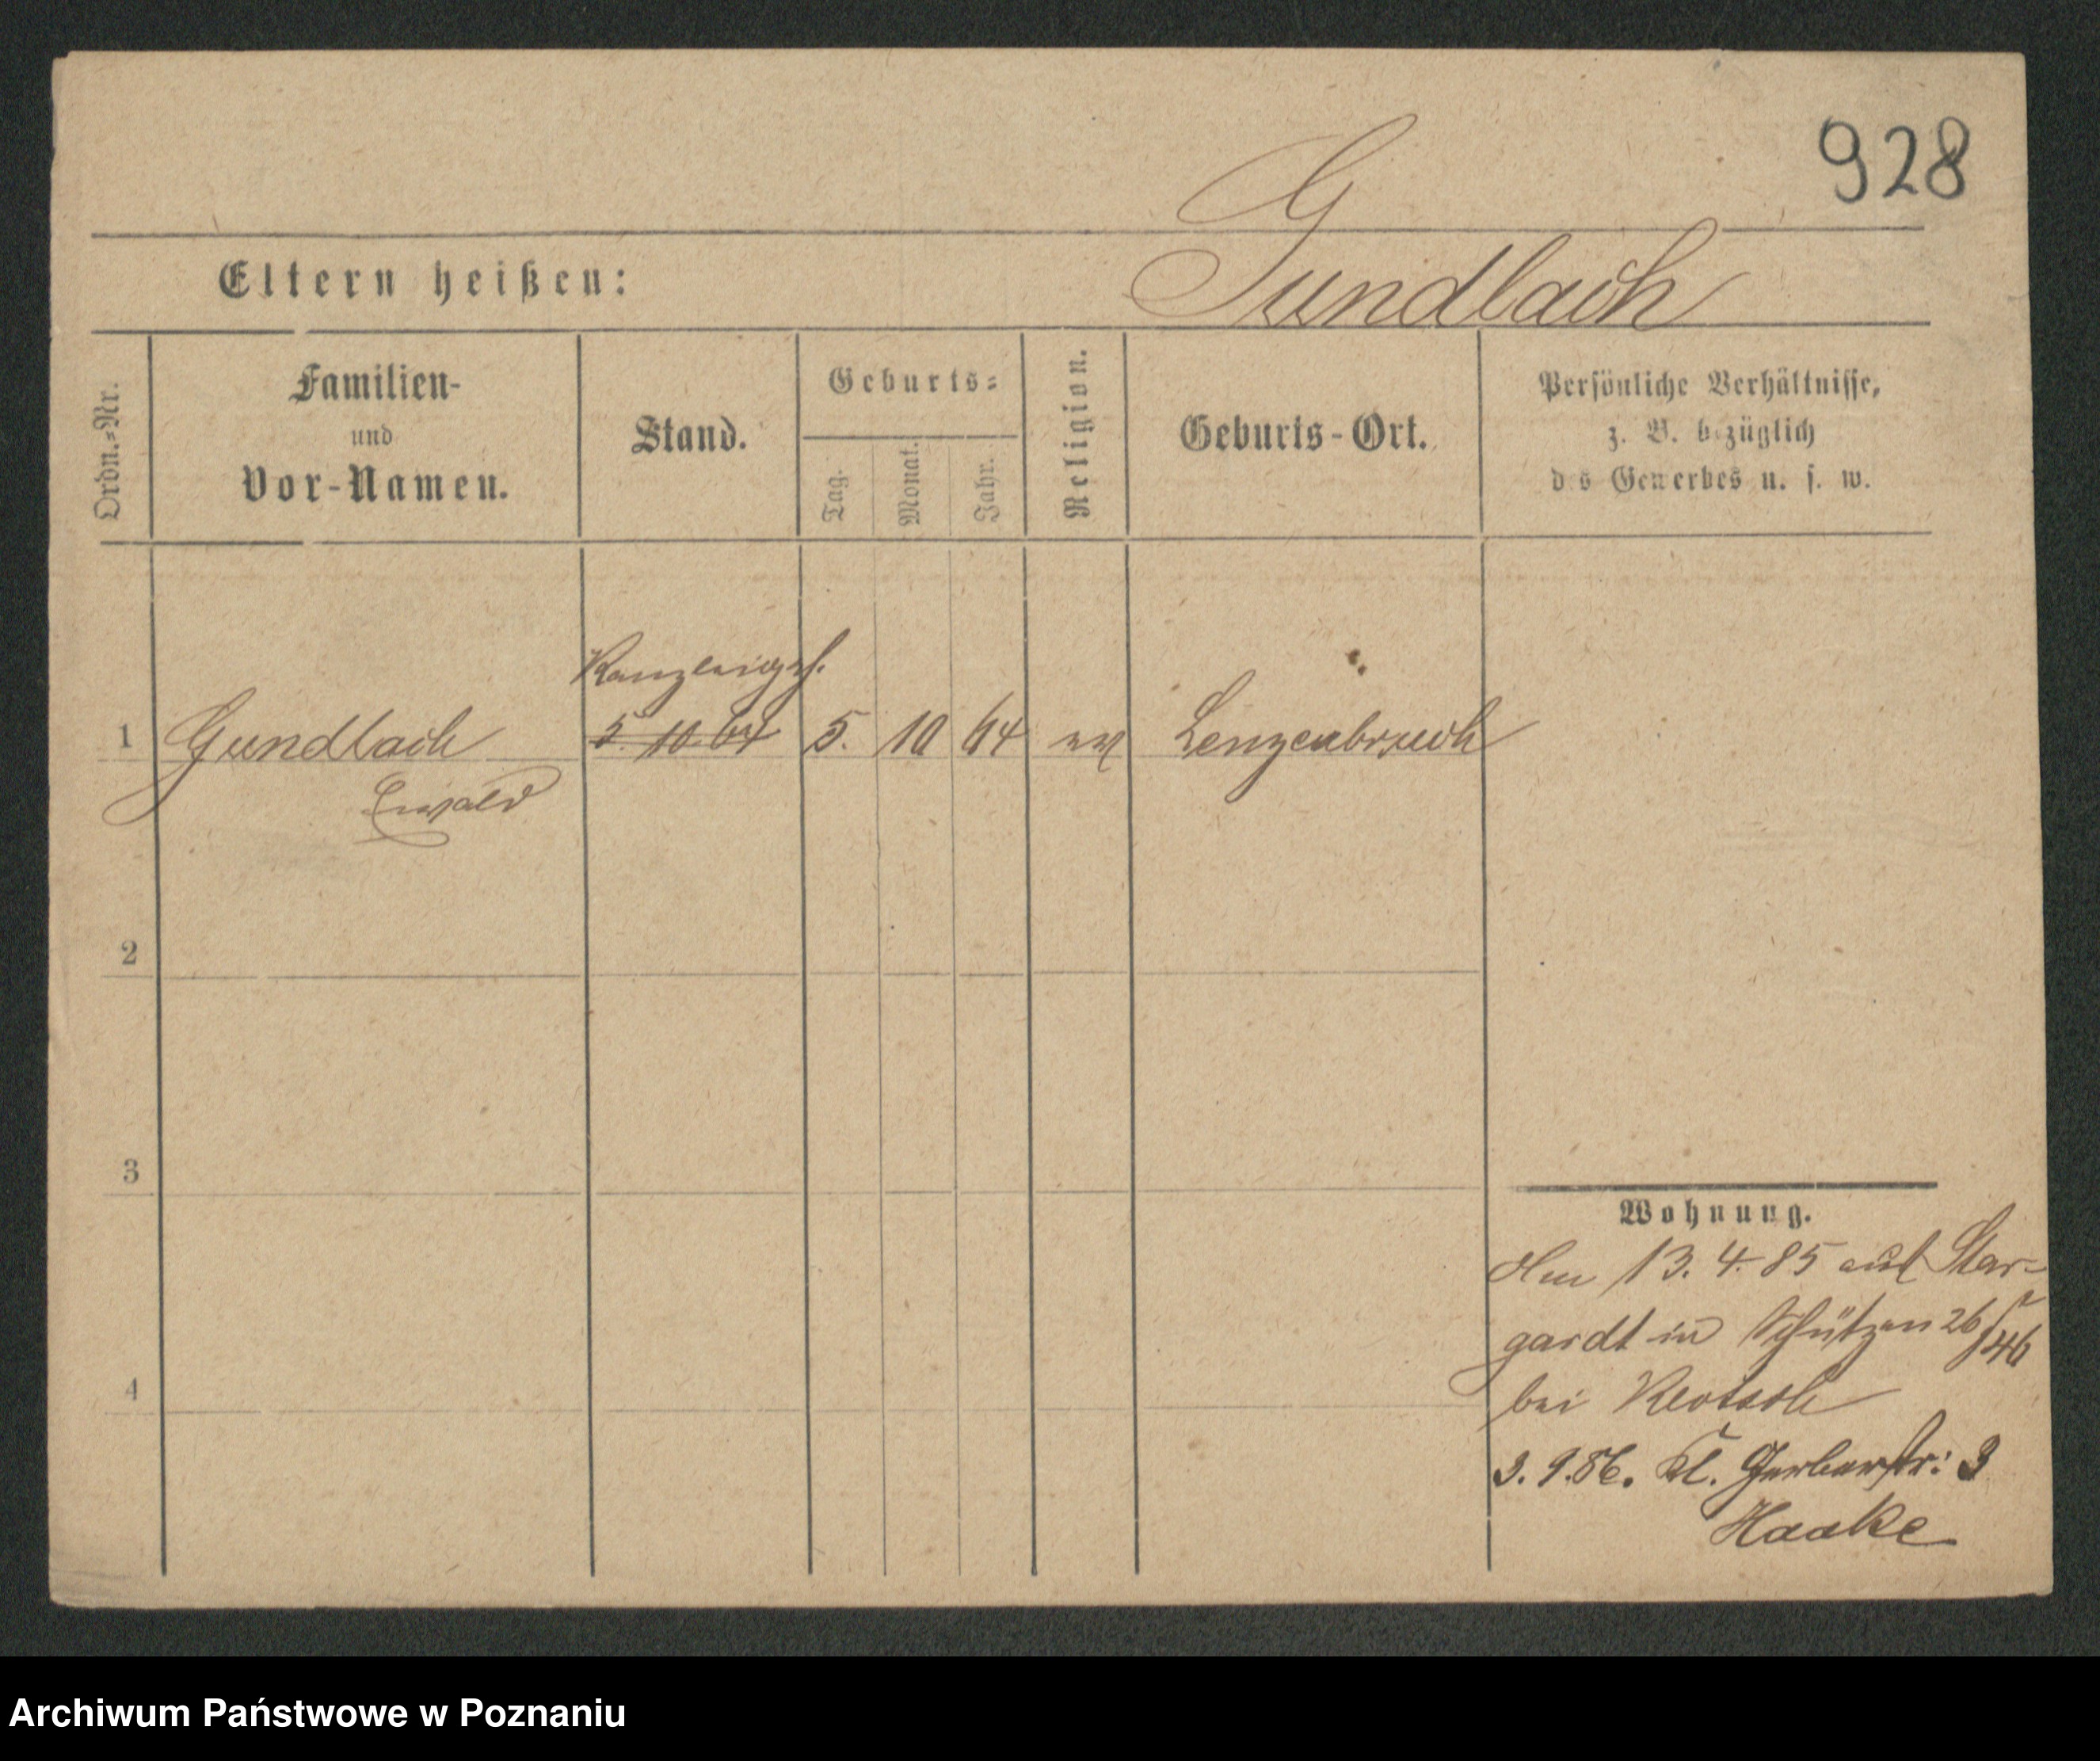 928
Gundlach
Eltern heißen:
Ordn.=Nr.
Familien-
und
Vor-Namen.
Stand.
Geburts=
Tag.
Monat.
Jahr.
Religion.
Geburts-Ort.
Persönliche Verhältnisse,
z. B. bezüglich
des Gewerbes u. s. w.
1
Gundlach
Ewald
5. 10. 64
5.
10
64
Lenzenbruch
2
3
4
Wohnung.
13. 4. 85 aus Star-
gardt in Schützen 26
bei
3. 9. 86. Kl. Gerberstr: 3
Haake
Archiwum Państwowe w Poznaniu